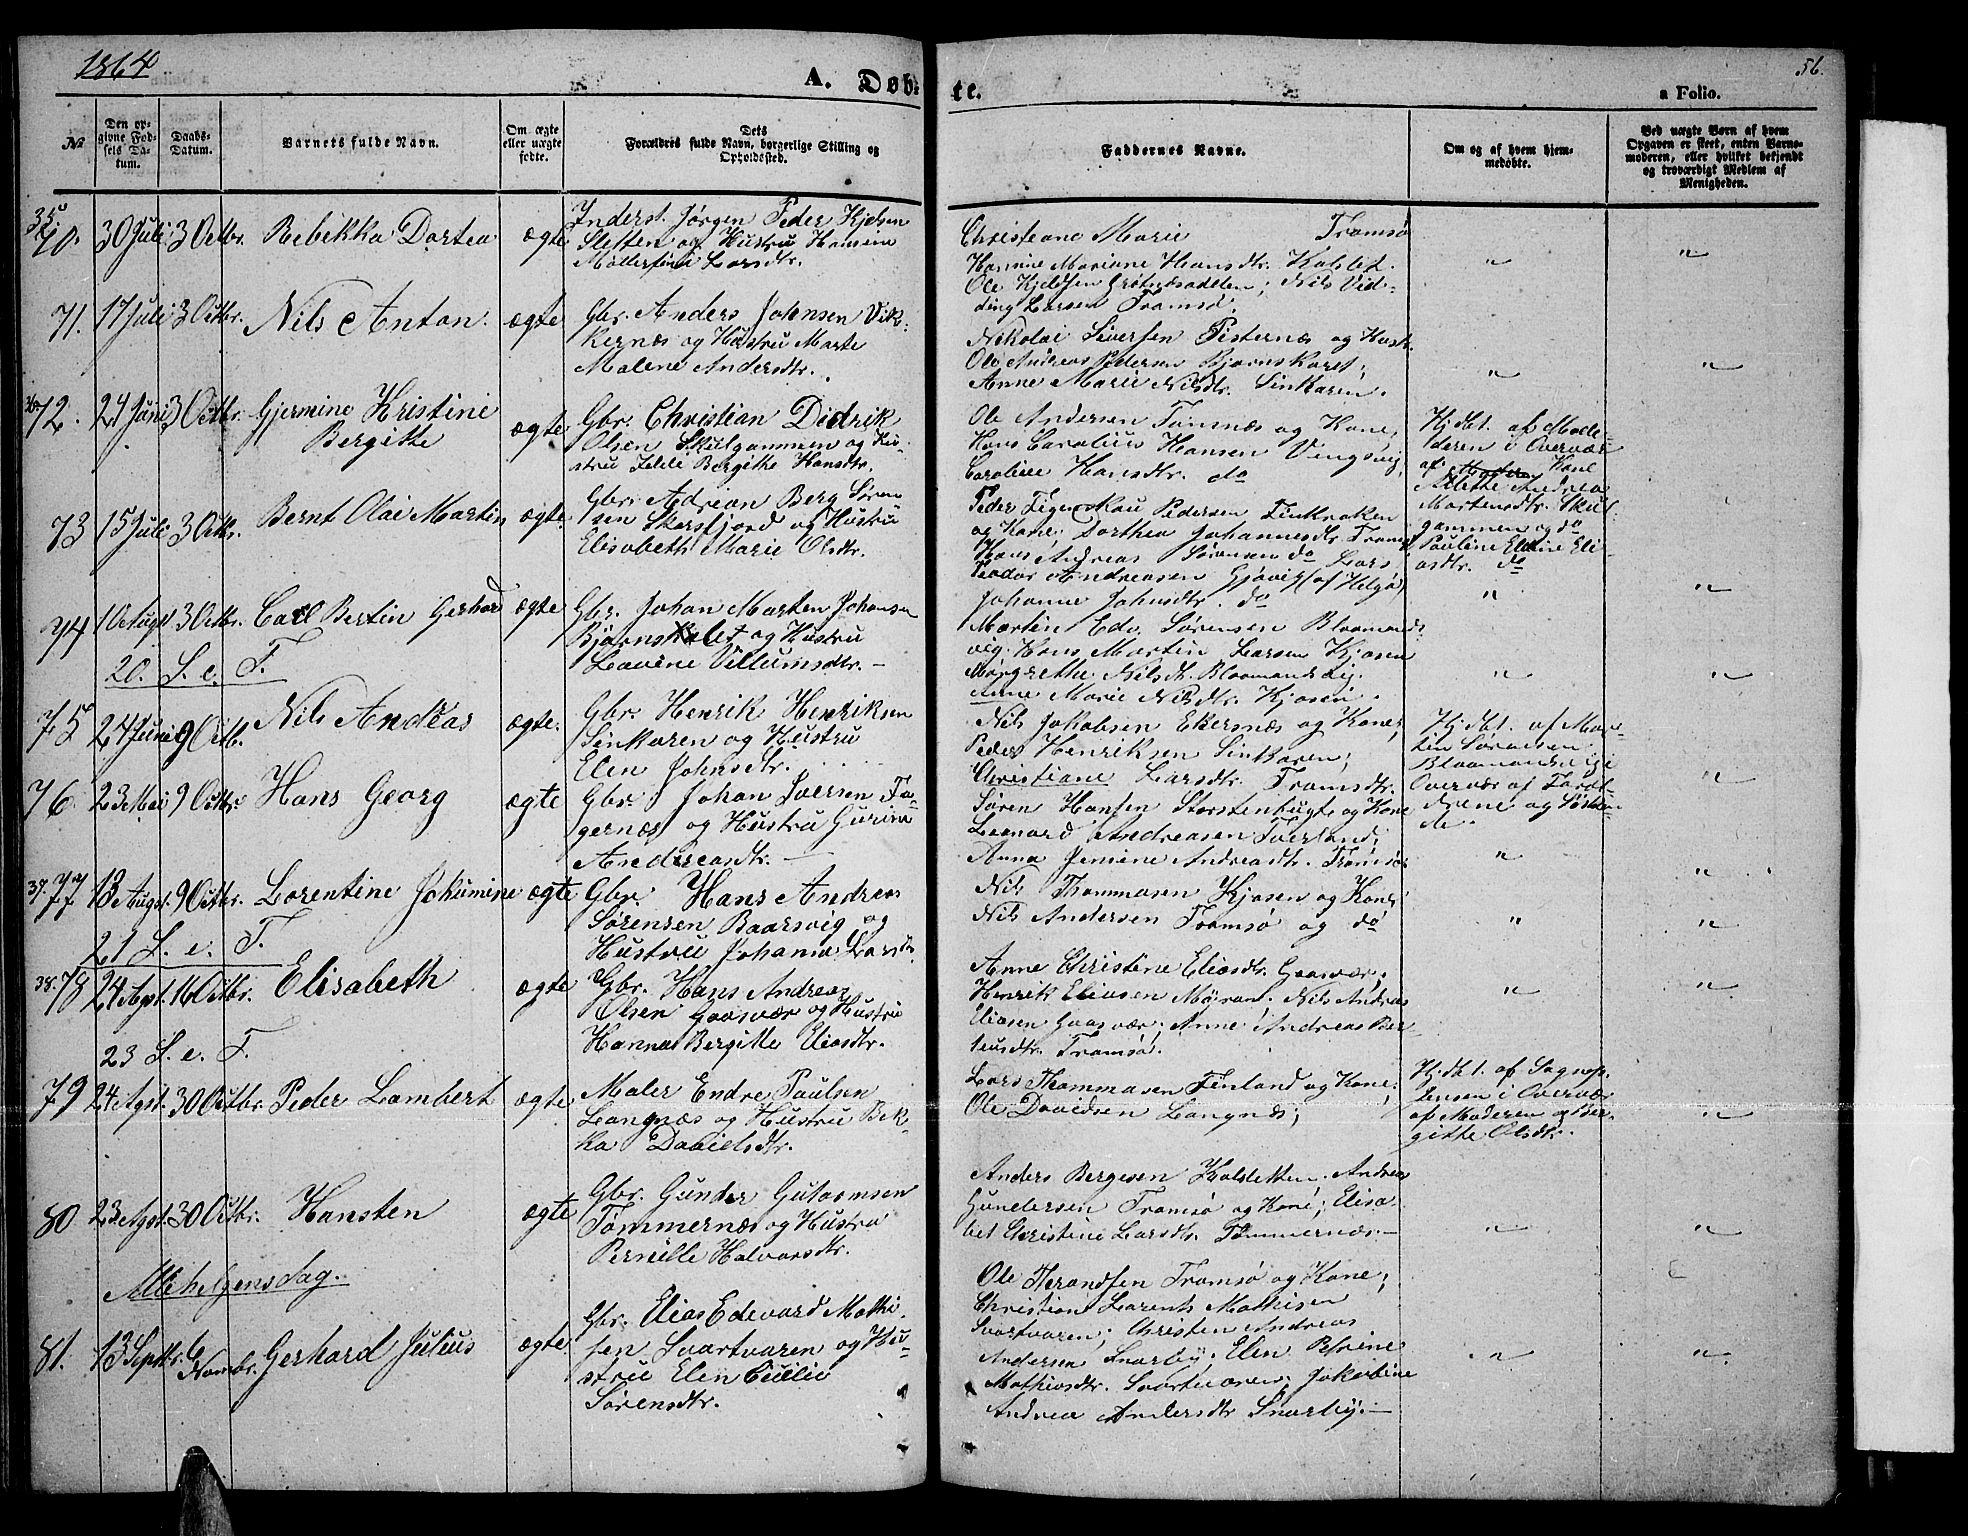 1864
A. Døb-
te.
56.
a Folio.
No
Den opgivne Fødsels Datum.
Daabs-Datum.
Barnets fulde Navn.
Om ægte eller uægte fødte.
Dets Forældres fulde Navn, borgerlige Stilling og Opholdssted.
Faddernes Navne.
Om og af hvem hjemmedøbte.
Ved uægte Børn af hvem Opgaven er skeet, enten Barnemoderen, eller hvilket bekjendt og troværdigt Medlem af Menigheden.
35
70. 30 Juli 3 Octbr. Rebikka Dortea ægte Inderst. Jørgen Peder Kjelsen
Sletten og Hustru Hansine
Larsdtr.
Christiane Marie Tromsø
Hansine Mariane Hansdtr. Kalslet.
Ole Kjeldsen; Nils Vid-
ding Larsen Tromsø.
71. 17 Juli 3 Octbr. Nils Anton. ægte Gbr. Anders Johnsen Vik-
kernæs og Hustru Marte
Malene Andersdtr.
Nikolai Siversen Tisternæs og Hust.
Ole Andreas Pedersen Bjørnskaret;
Anne Marie Nilsdtr. Sinkaren.
36
72. 24 Juni 3 Octbr. Gjermine Kristine
Bergitte
ægte Gbr. Christian Didrik
Olsen Skulgammen og Hu-
stru Bergitte Hansdtr.
Ole Andersen Tømnæs og Kone;
Hans Carolius Hansen Vengsvig;
Caroline Hansdtr. do
Hjdbt. af Mode-
deren i Overvær
af Kone
Aletthe Andrea
Mortensdtr. Skul-
gammen og do
Pauline Eline Eli-
asdtr. do
73 15 Juli 3 Octbr. Bernt Olai Martin ægte Gbr. Adrian Berg Søren
sen Skarsfjord og Hustru
Elisabeth Marie Olsdtr.
Peder Pedersen Finkroken
og Kone; Dorthea Johannesdtr. Tromsø
Hans Andreas Sørensen do Lars
Peodor Andreasen Gjøvig (af Helgø)
Johanne Johnsdtr. do
74 10 Augt 3 Octbr. Carl Bertin Gerhard ægte Gbr. Johan Marten Johansen
Bjørnskalet og Hustru
Lavine Villumsdtr. —
Martin Edv. Sørensen Blaamands-
vig. Hans Martin Larsen Kjosen
Margrethe Nilsdt. Blaamandsvig.
Anne Marie Nilsdtr. Kjosen.
20. S. e. T.
75 24 Juni 9 Octb. Nils Andreas ægte. Gbr. Henrik Henriksen
Sinkaren og Hustru
Elen Johnsdtr.
Nils Jakobsen Ekernæs og Kone;
Peder Henriksen Sinkaren;
Christiane Larsdtr. Tromsdtr.
Hjdbt. af Mor-
ten Sørensen
Blaamandsvig i
Overvær af Foræl-
drene og Søsken-
de.
76. 23 Mai 9 Octbr Hans Georg ægte Gbr. Johan Iversen Fa-
gernæs og Hustru Gurine
Andreasdtr. —
Søren Hansen Storstenhugte og Kone
Leonard Andreasen Tverland;
Anna Jensine Andreadtr. Tromsø
37. 77 13 Augst. 9 Octbr. Lorentine Johanine ægte Gbr. Hans Andreas
Sørensen Baarsvig og
Hustru Johanna Larsdtr.
Nils Thommasen Kjosen og Kone
Nils Andersen Tromsø og do
21 S. e. T.
38. 78 24 Agst. 16 Octbr. Elisabeth ægte Gbr. Hans Andreas
Olsen Gaasvær og Hustru
Hanna Bergitte Eliasdtr.
Anne Christine Eliasdtr. Gaasvær;
Henrik Eliasen Myran. Nils Andreas
Eliasen Gaasvær; Anne Andreas Ber-
teusdtr. Tromsø.
23 S. e. T.
79 24 Agst. 30 Octbr. Peder Lambert ægte Maler Endre Paulsen
Langnæs og Hustru Bek-
ka Davielsdtr.
Lars Thommasen Finland og Kone;
Ole Davidsen Langnæs;
Hjdbt. af Sognep.
Jensen i Overvær
af Moderen og Ber-
gitte Olsdtr.
80 23 Agst. 30 Octbr. Hansten ægte Gbr. Gunder Gutormsen
Tømmernæs og Hustru
Pernille Halvorsdtr.
Anders Bergesen Kaldsletten. Andreas
Gundersen Tromsø og Kone; Elisa-
bet Christine Larsdtr. Tømmernæs. —
Allehelgensdag.
81. 13 Septbr. 6 Novbr. Gerhard Julius ægte Gbr. Elias Edevard Mathi-
sen Svartvaren og Hu-
stru Elen Cecilie
Sørensdtr.
Ole Tromsø og Kone;
Christian Lorents Mathisen
Svartvaren; Christen Andreas
Andersen Snarby; Elen Petrine
Mathiasdtr. Svartvaren; Jakobine
Andrea Andersdtr Snarby. —